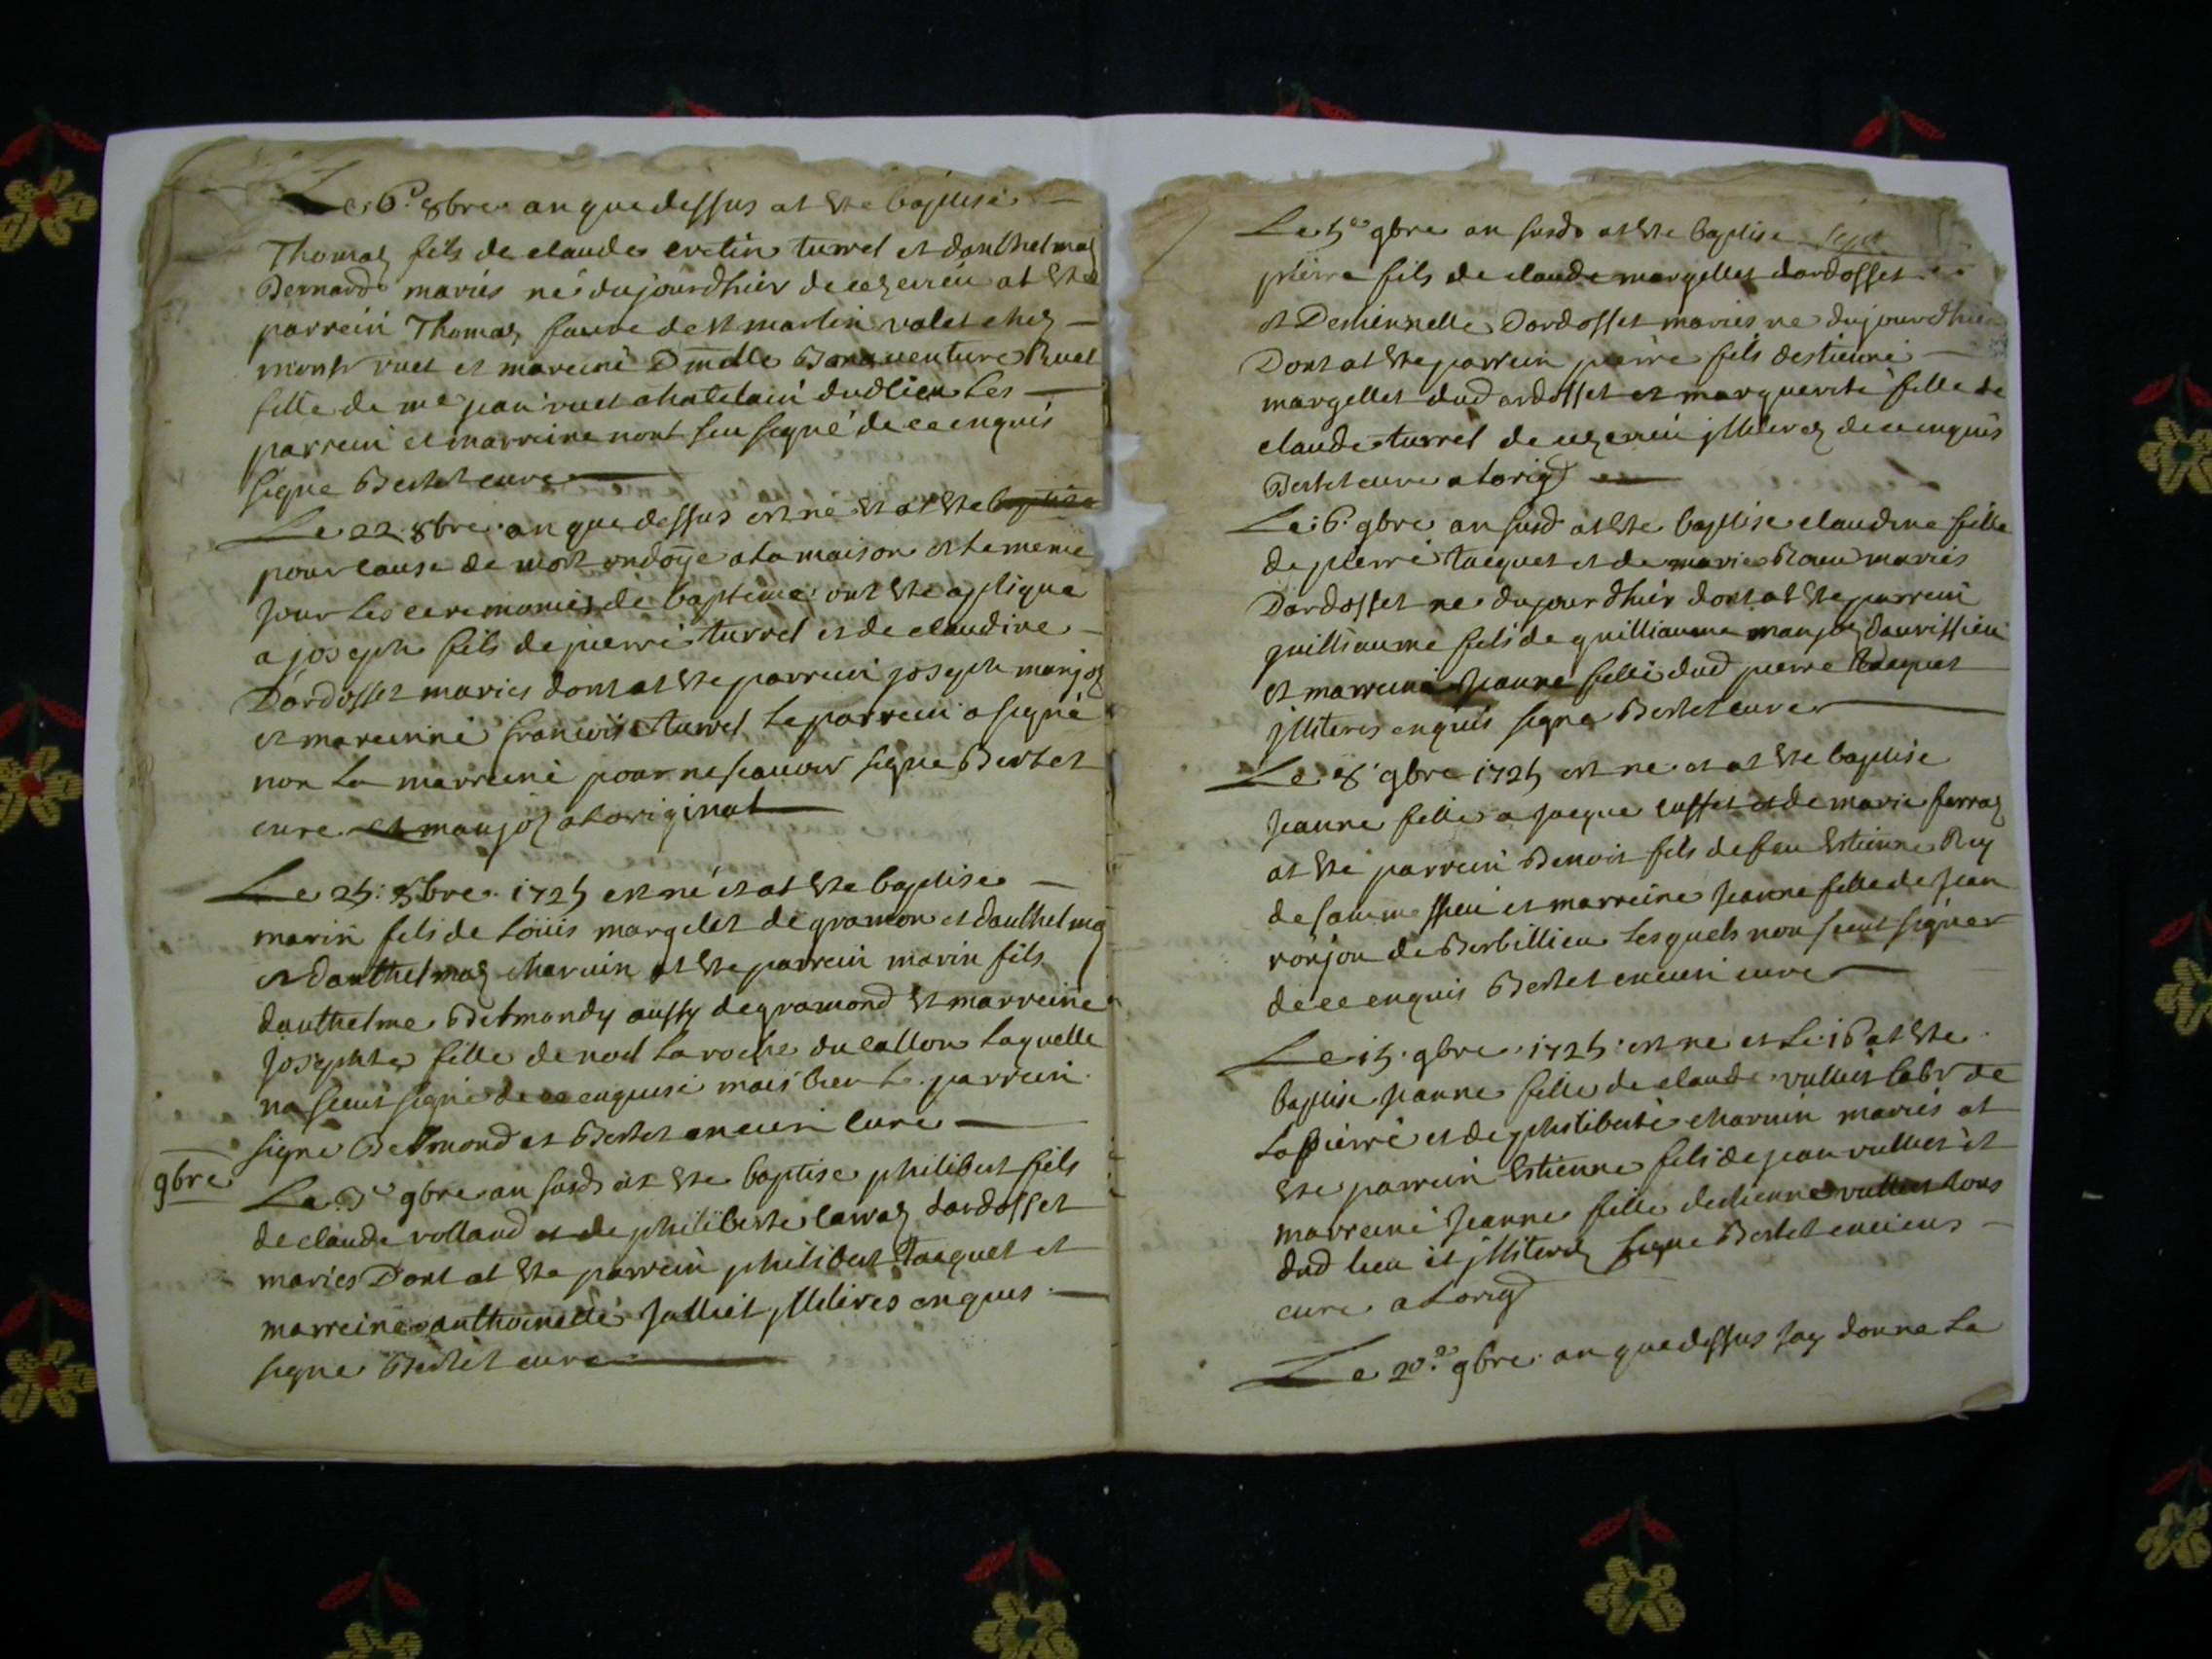 Le 6e 8bre an que dessus at este baptisé
Thomas fils de claude evetin turrel et danthelmaz
Bernard mariés né dujourdhier de cezerieu at este
parrein Thomas faure de st martin valet chez
monsr ruet et mareine Dmelle Bonaventure Ruet
fille de me jean ruet chatelain dudlieu les
parrein et marreine nont sceu signé de ce enquis
signe Bertet cure
Le 22 8bre an que dessus est né et at este baptise
pour cause de mort ondoye a la maison et le meme
jour les ceremonies de bapteme ont este applique
a joseph fils de pierre turrel et de claudine
Dardosset maries dont at este parrein joseph manjoz
et mareinne francoise turrel le parrein a signé
non la marreine pour ne scavoir signe Bertet
cure et manjoz a loriginal
Le 25 8bre 1725 est né et at este baptise
marin fils de Loüis margelet de gramon et danthelmaz
et danthelmaz charvin at este parrein marin fils
danthelme Belmondy aussy de gramond et marreine
josephte fille de noel laroche du callou laquelle
na sceut signé de ce enquise mais bien le parrein
signe Belmond et Bertet ancien cure
9bre
Le 3e 9bre an susd at este baptise philibert fils
de claude volland et de philiberte carraz dardosset
maries Dont at este parrein philibert Tacquet et
marreine anthoinette Julliet jlliteres enquis
signe Bertet cure
Le 5e 9bre an susd at este baptise
pierre fils de claude margellet dardosset
et Destiennelle Dardosset maries ne dujourdhier
Dont at este parrein pierre fils destienne
margellet dud ardosset et marguerite fille de
claude turrel de cezerieu jlliterez de ce enquis
Bertet cure a lorigl
Le 6e 9bre an susd at este baptise claudine fille
de pierre tacquet et de marie Roux mariés
Dardosset ne dujourdhier dont at este parrein
guilliaume fils de guilliaume manjoz davrissieu
et marreine Jeanne fille dud pierre tacquet
jlliteres enquis signe Bertet cure
Le 8e 9bre 1725 est ne et at este baptise
Jeanne fille a Jacque cusset et de marie ferraz
at esté parrein Benoit fils de feu Estienne Rey
de sammessieu et marreine Jeanne fille de Jean
ronjon de Berbillieu lesquels non sceut signer
de ce enquis Bertet encien cure
Le 15 9bre 1725 est ne et le 16 at este
baptise Jeanne fille de claude vulliet labr de
lapierre et de philiberte charvin mariés at
este parrein Estienne fils de jean vulliet et
marreine Jeanne fille destienne vulliet tous
dud lieu et jlliterez signe Bertet enciens
cure a lorigl
Le 20e 9bre an que dessus jay donne la